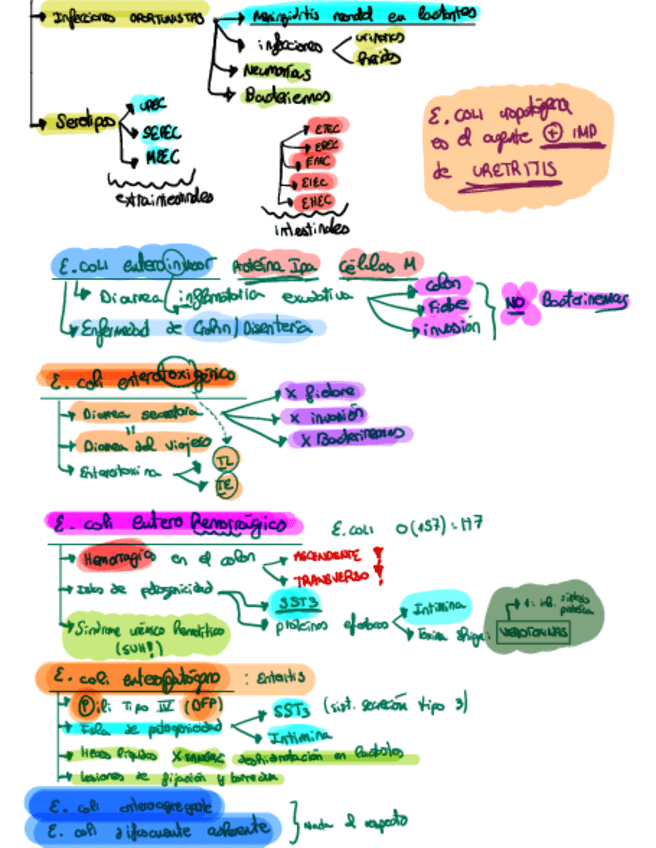 Infecciones OPORTUNISTAS
Meningitis neonatal en lactantes
infecciones
urinarias
Neumonías
Bacteriemias
Serotipos
UPEC
SEPEC
MEEC
extraintestinales
ETEC
EPEC
EAEC
EIEC
EHEC
intestinales
E. coli uropatógena
es el agente + IMP
de URETRITIS
E. coli enteroinvasor Proteína Ipa Células M
Diarrea inflamatoria exudativa
Colon
Fiebre
invasión
NO Bacteriemias
Enfermedad de Colon / Disentería
E. coli enterotoxigénico
Diarrea secretora
X fiebre
X invasión
X Bacteriemias
Diarrea del viajero
Enterotoxina
TL
TE
E. coli enterohemorrágico
E. coli O(157):H7
Hemorragia en el colon
ASCENDENTE
TRANSVERSO
Islas de patogenicidad
SST3
proteínas efectoras
Intimina
Toxina Shiga:
VEROTOXINAS
Síndrome urémico hemolítico
(SUH!)
E. coli enteropatógeno : Enteritis
Pili Tipo IV (BFP)
Isla de patogenicidad
SST3 (sist. secreción tipo 3)
Intimina
Heces líquidas X deshidratación en lactantes
Lesiones de fijación y borrado
E. coli enteroagregante
E. coli difusamente adherente
Nada al respecto